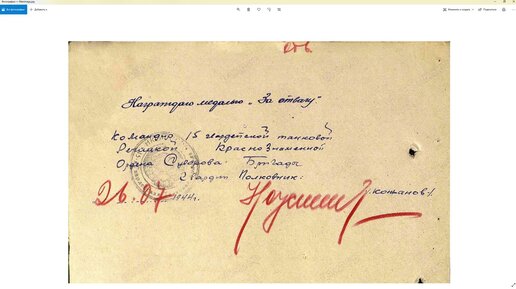 Все фотографии + Добавить к Изменить и создать Поделиться
Награждаю медалью „За отвагу"
Командир 15 гвардейской танковой
Речицкой Краснознаменной
Ордена Суворова Бригады
Гвардии Полковник:
26.07 1944г. /Кожанов/.